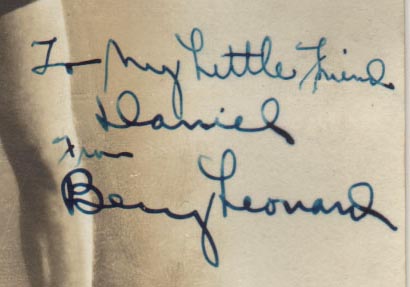 To My Little Friend
Daniel
From
Benny Leonard